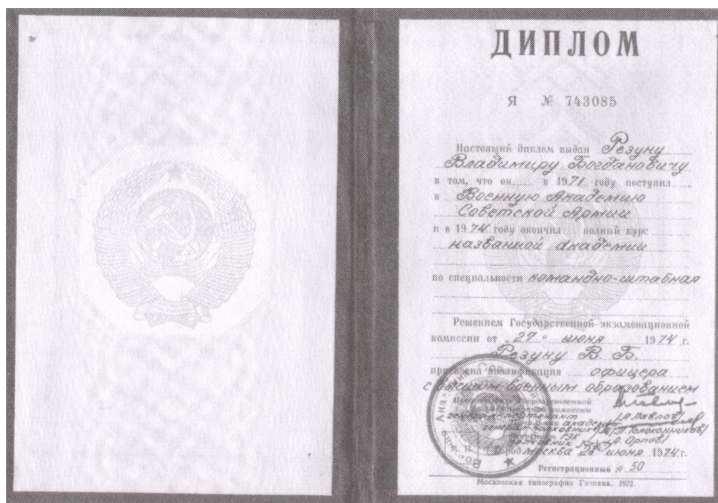 ДИПЛОМ
Я № 743085
Настоящий диплом выдан Резуну
Владимиру Богдановичу
в том, что он в 1971 году поступил
в Военную Академию
Советской Армии
и в 1974 году окончил полный курс
названной академии
по специальности командно-штабная
Решением Государственной экзаменационной
комиссии от "27" июня 1974 г.
Резуну В. Б.
присвоена квалификация офицера
с высшим военным образованием
Председатель Государственной
экзаменационной комиссии
генерал-лейтенант /Павлов/
Город Москва 28 июня 1974 г.
Регистрационный № 50
Московская типография Гознака. 1972.